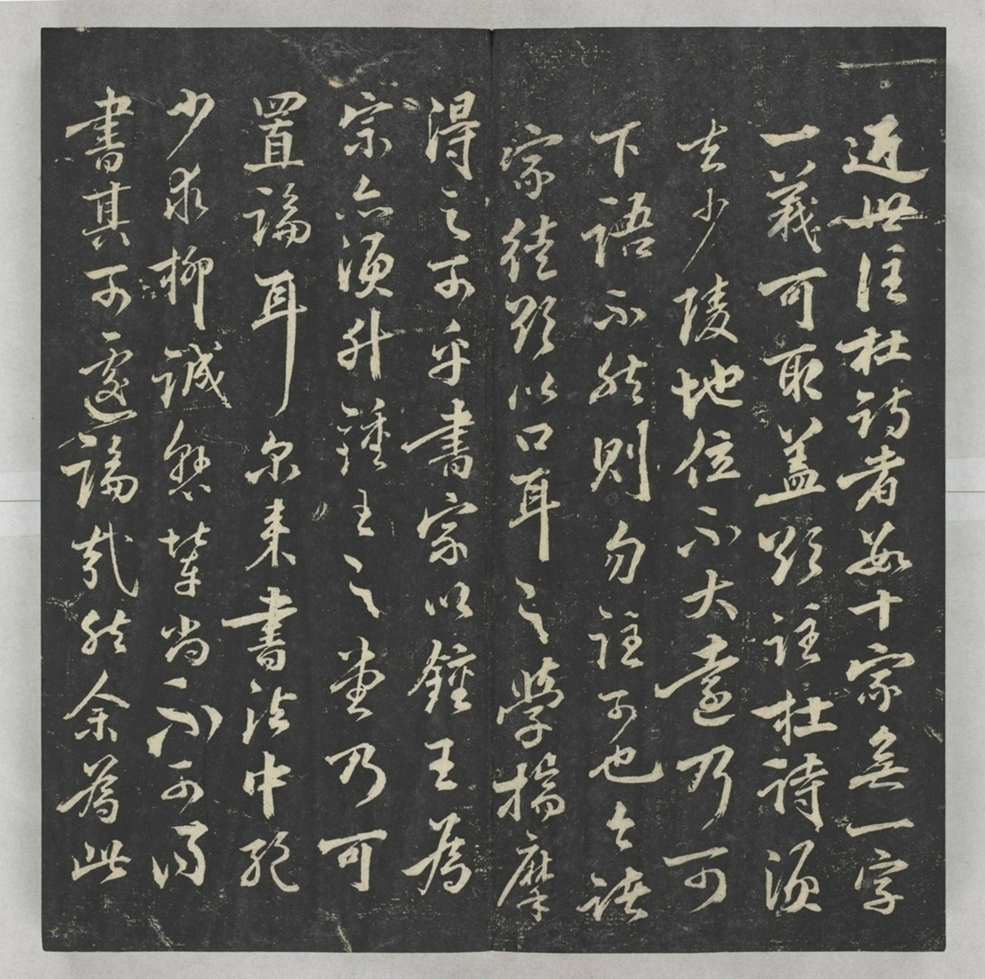 近世注杜詩者數十家無一字
一義可取蓋欲註杜詩須
去少陵地位不大遠乃可
下語不然則勿註可也今諸
家徒欲以口耳之學揣摩
得之可乎書家以鍾王為
宗亦須升鍾王之堂乃可
置論耳尔来書法中絶
少求柳誠懸輩尚不可得
書其可遽論哉然余為此